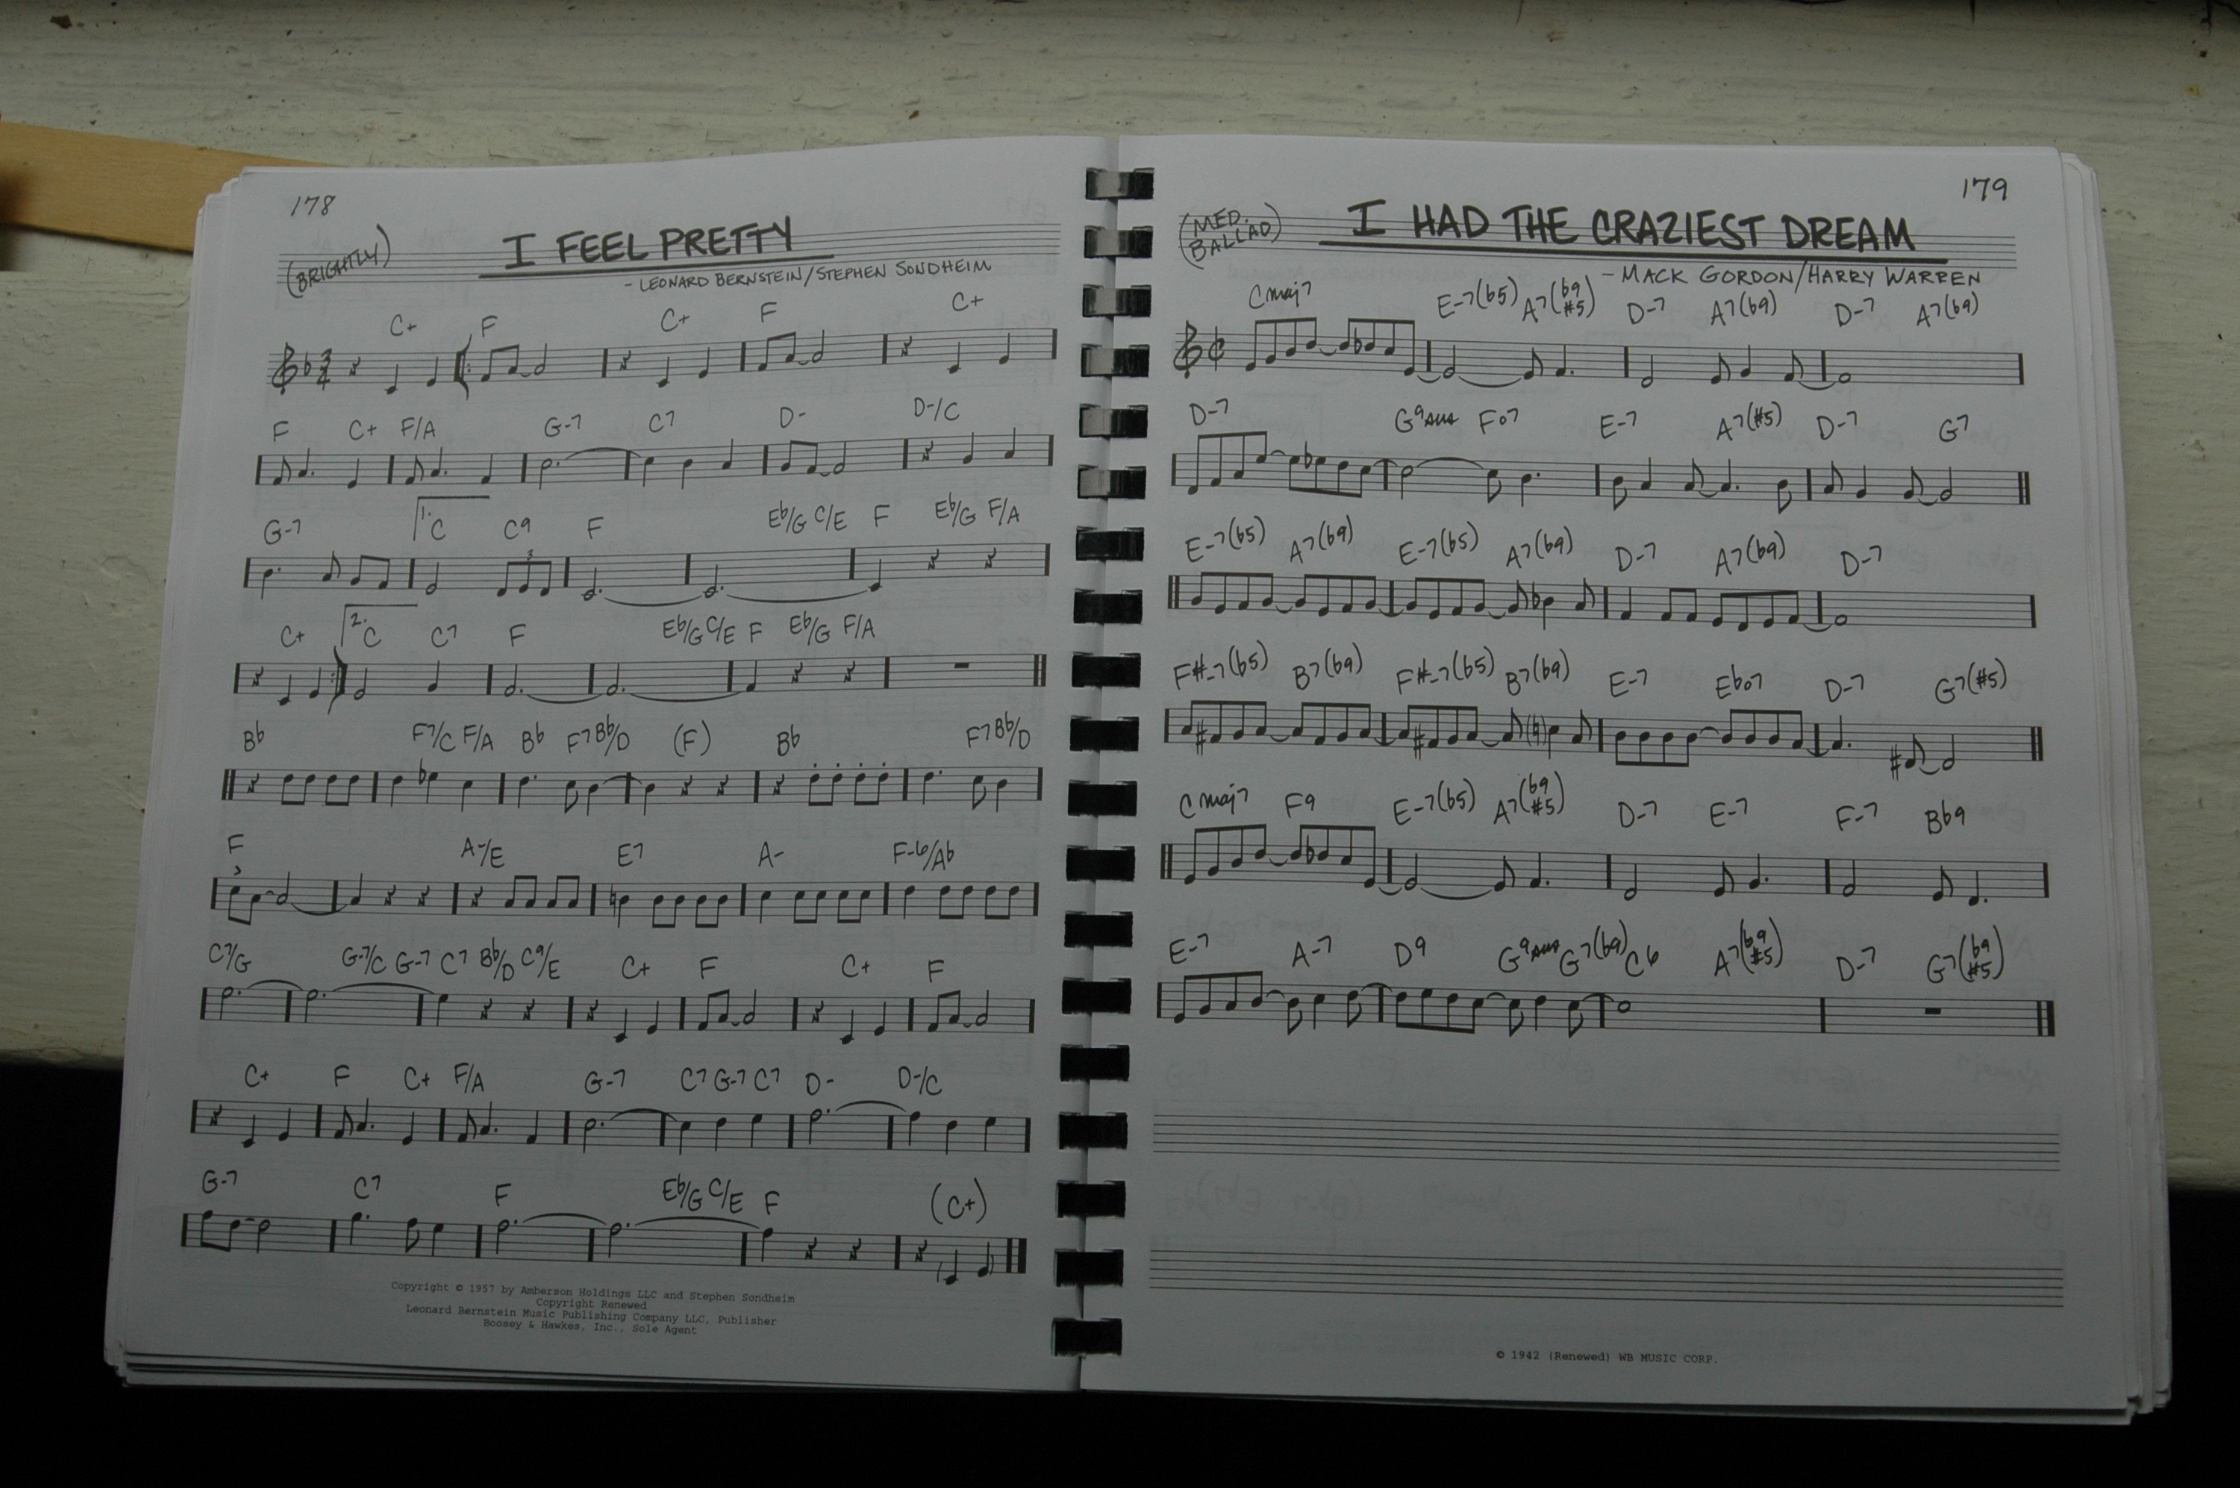 178
(BRIGHTLY)
I FEEL PRETTY
- LEONARD BERNSTEIN/STEPHEN SONDHEIM
C+ F C+ F C+
3 4
F C+ F/A G-7 C7 D- D-/C
G-7 1. C C9 F Eb/G C/E F Eb/G F/A
3
C+ 2. C C7 F Eb/G C/E F Eb/G F/A
Bb F7/C F/A Bb F7 Bb/D (F) Bb F7 Bb/D
F A-/E E7 A- F-6/Ab
C7/G G-7/C G-7 C7 Bb/D C9/E C+ F C+ F
C+ F C+ F/A G-7 C7 G-7 C7 D- D-/C
G-7 C7 F Eb/G C/E F (C+)
Copyright © 1957 by Amberson Holdings LLC and Stephen Sondheim
Copyright Renewed
Leonard Bernstein Music Publishing Company LLC, Publisher
Boosey & Hawkes, Inc., Sole Agent
179
(MED. BALLAD)
I HAD THE CRAZIEST DREAM
- MACK GORDON/HARRY WARREN
Cmaj7 E-7(b5) A7(b9 #5) D-7 A7(b9) D-7 A7(b9)
D-7 G9sus F°7 E-7 A7(#5) D-7 G7
E-7(b5) A7(b9) E-7(b5) A7(b9) D-7 A7(b9) D-7
F#-7(b5) B7(b9) F#-7(b5) B7(b9) E-7 Eb°7 D-7 G7(#5)
Cmaj7 F9 E-7(b5) A7(b9 #5) D-7 E-7 F-7 Bb9
E-7 A-7 D9 G9sus G7(b9) C6 A7(b9 #5) D-7 G7(b9 #5)
© 1942 (Renewed) WB MUSIC CORP.